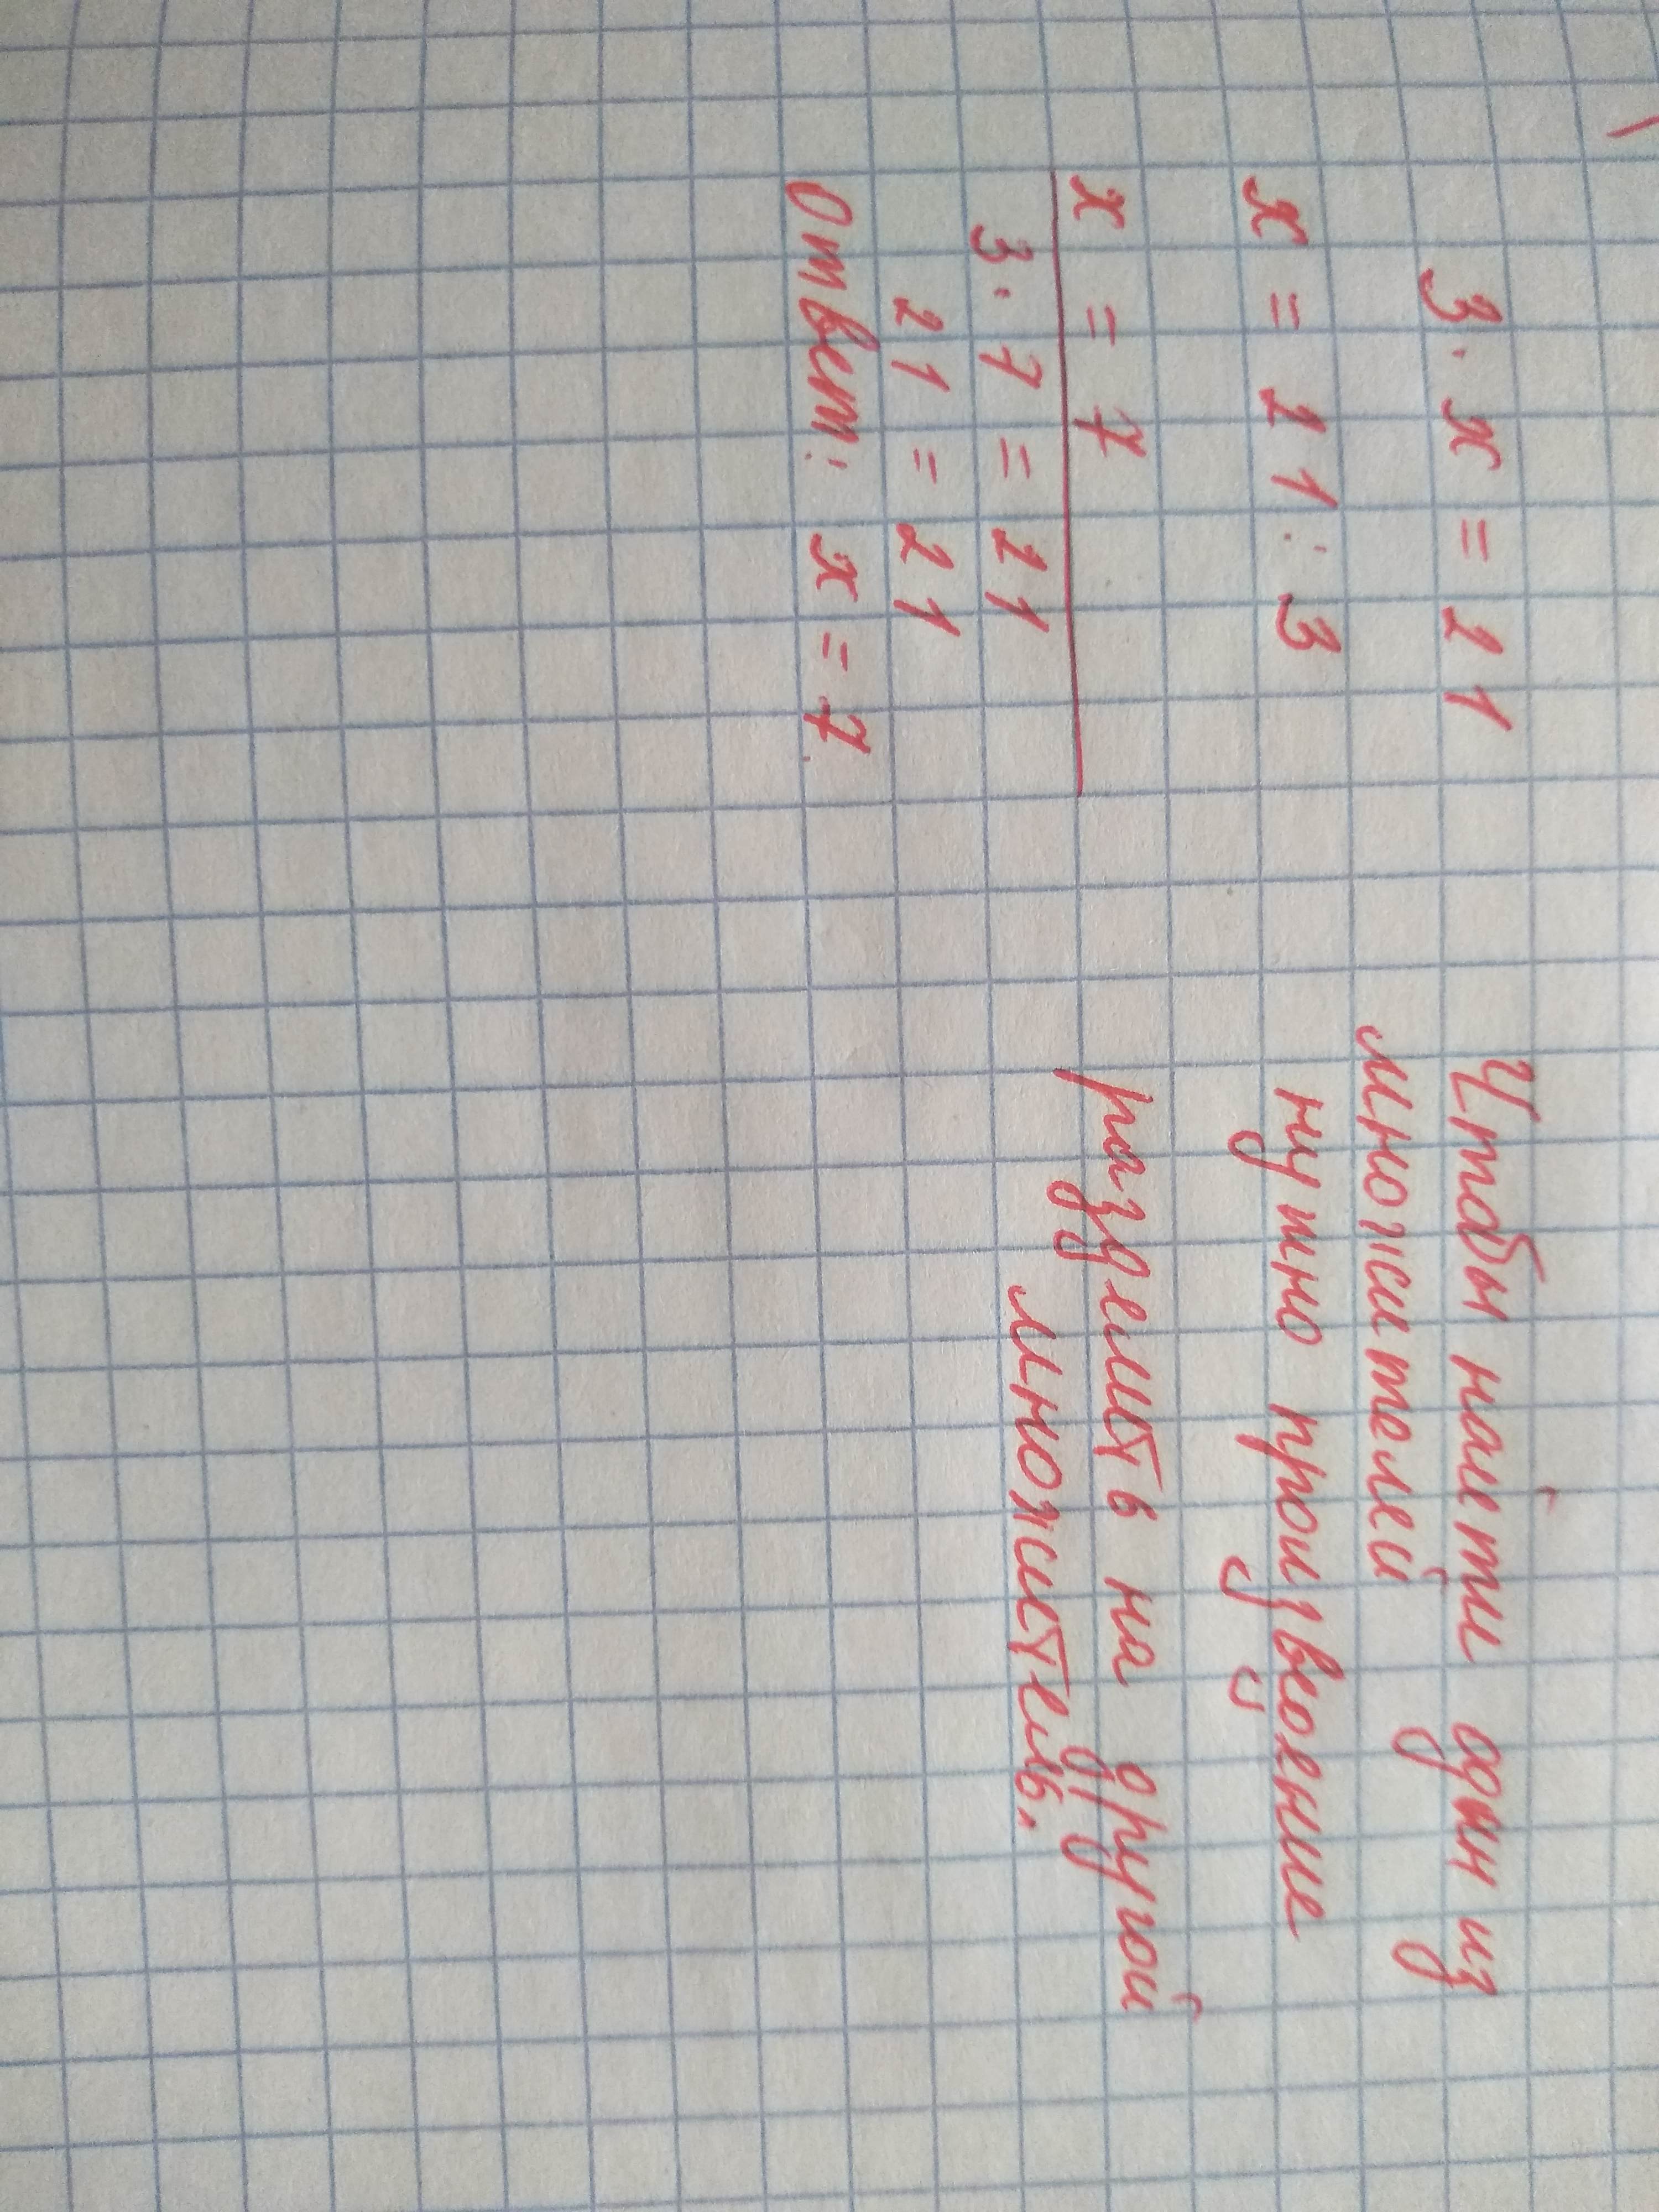 3 · x = 21
x = 21 : 3
x = 7
3 · 7 = 21
21 = 21
Ответ: x = 7.
Чтобы найти один из
множителей
нужно произведение
разделить на другой
множитель.